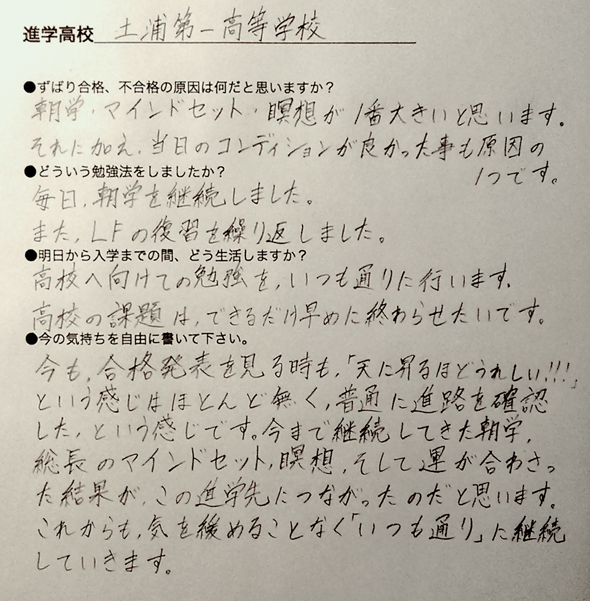 進学高校 土浦第一高等学校
●ずばり合格、不合格の原因は何だと思いますか？
朝学・マインドセット・瞑想が1番大きいと思います。
それに加え、当日のコンディションが良かった事も原因の
1つです。
●どういう勉強法をしましたか？
毎日、朝学を継続しました。
また、LFの復習を繰り返しました。
●明日から入学までの間、どう生活しますか？
高校へ向けての勉強を、いつも通りに行います。
高校の課題は、できるだけ早めに終わらせたいです。
●今の気持ちを自由に書いて下さい。
今も、合格発表を見る時も、「天に昇るほどうれしい!!!」
という感じはほとんど無く、普通に進路を確認
した、という感じです。今まで継続してきた朝学、
総長のマインドセット、瞑想、そして運が合わさっ
た結果が、この進学先につながったのだと思います。
これからも、気を緩めることなく「いつも通り」に継続
していきます。